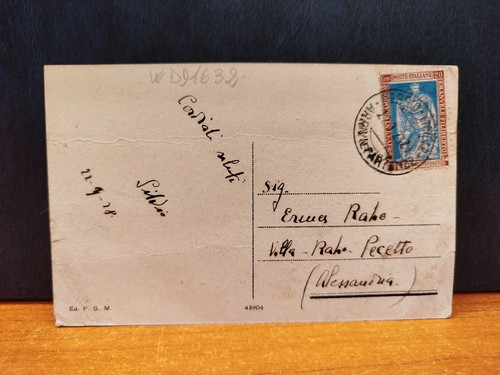 WDD1632
POSTE ITALIANE
Cordiali saluti
Silvio
22-9-28
Sig.
Ermes Raho -
Villa - Raho - Pecetto
(Alessandria)
Ed. P. G. M.
43904